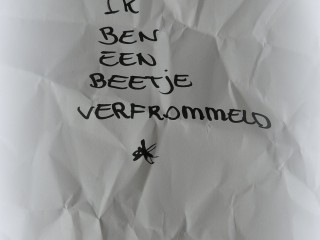 IK
BEN
EEN
BEETJE
VERFROMMELD
*